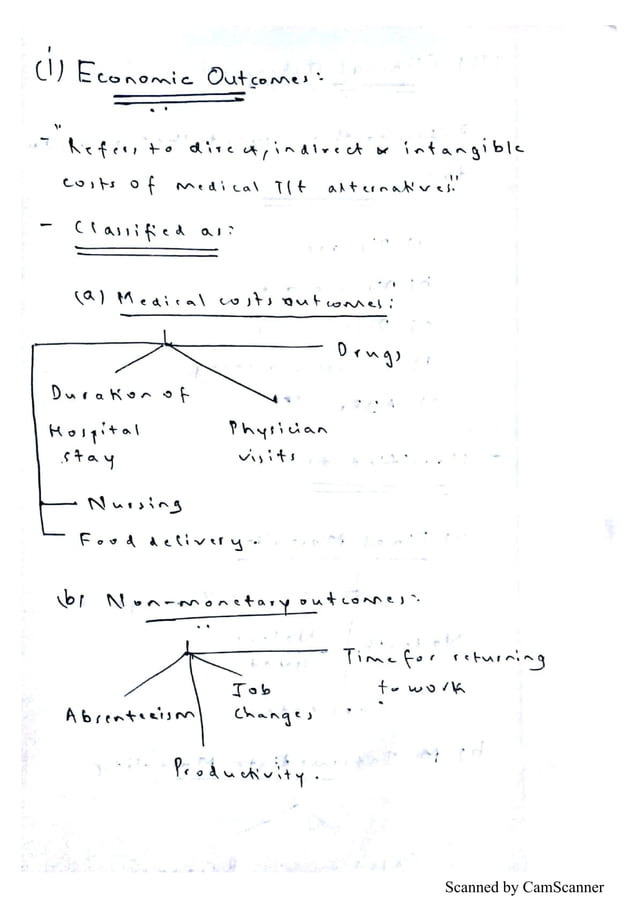 (i) Economic Outcomes:
- "Refers to direct, indirect or intangible
costs of medical T/t alternatives."
- Classified as:
(a) Medical costs outcomes:
Drugs
Duration of
Hospital
stay
Physician
visits
Nursing
Food delivery.
(b) Non-monetary outcomes:
Time for returning
to work
Job
Changes
Absenteeism
Productivity.
Scanned by CamScanner